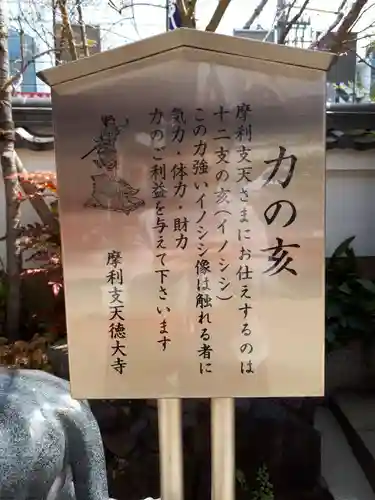 力の亥
摩利支天さまにお仕えするのは
十二支の亥(イノシシ)
この力強いイノシシ像は触れる者に
気力・体力・財力
力のご利益を与えて下さいます
摩利支天徳大寺